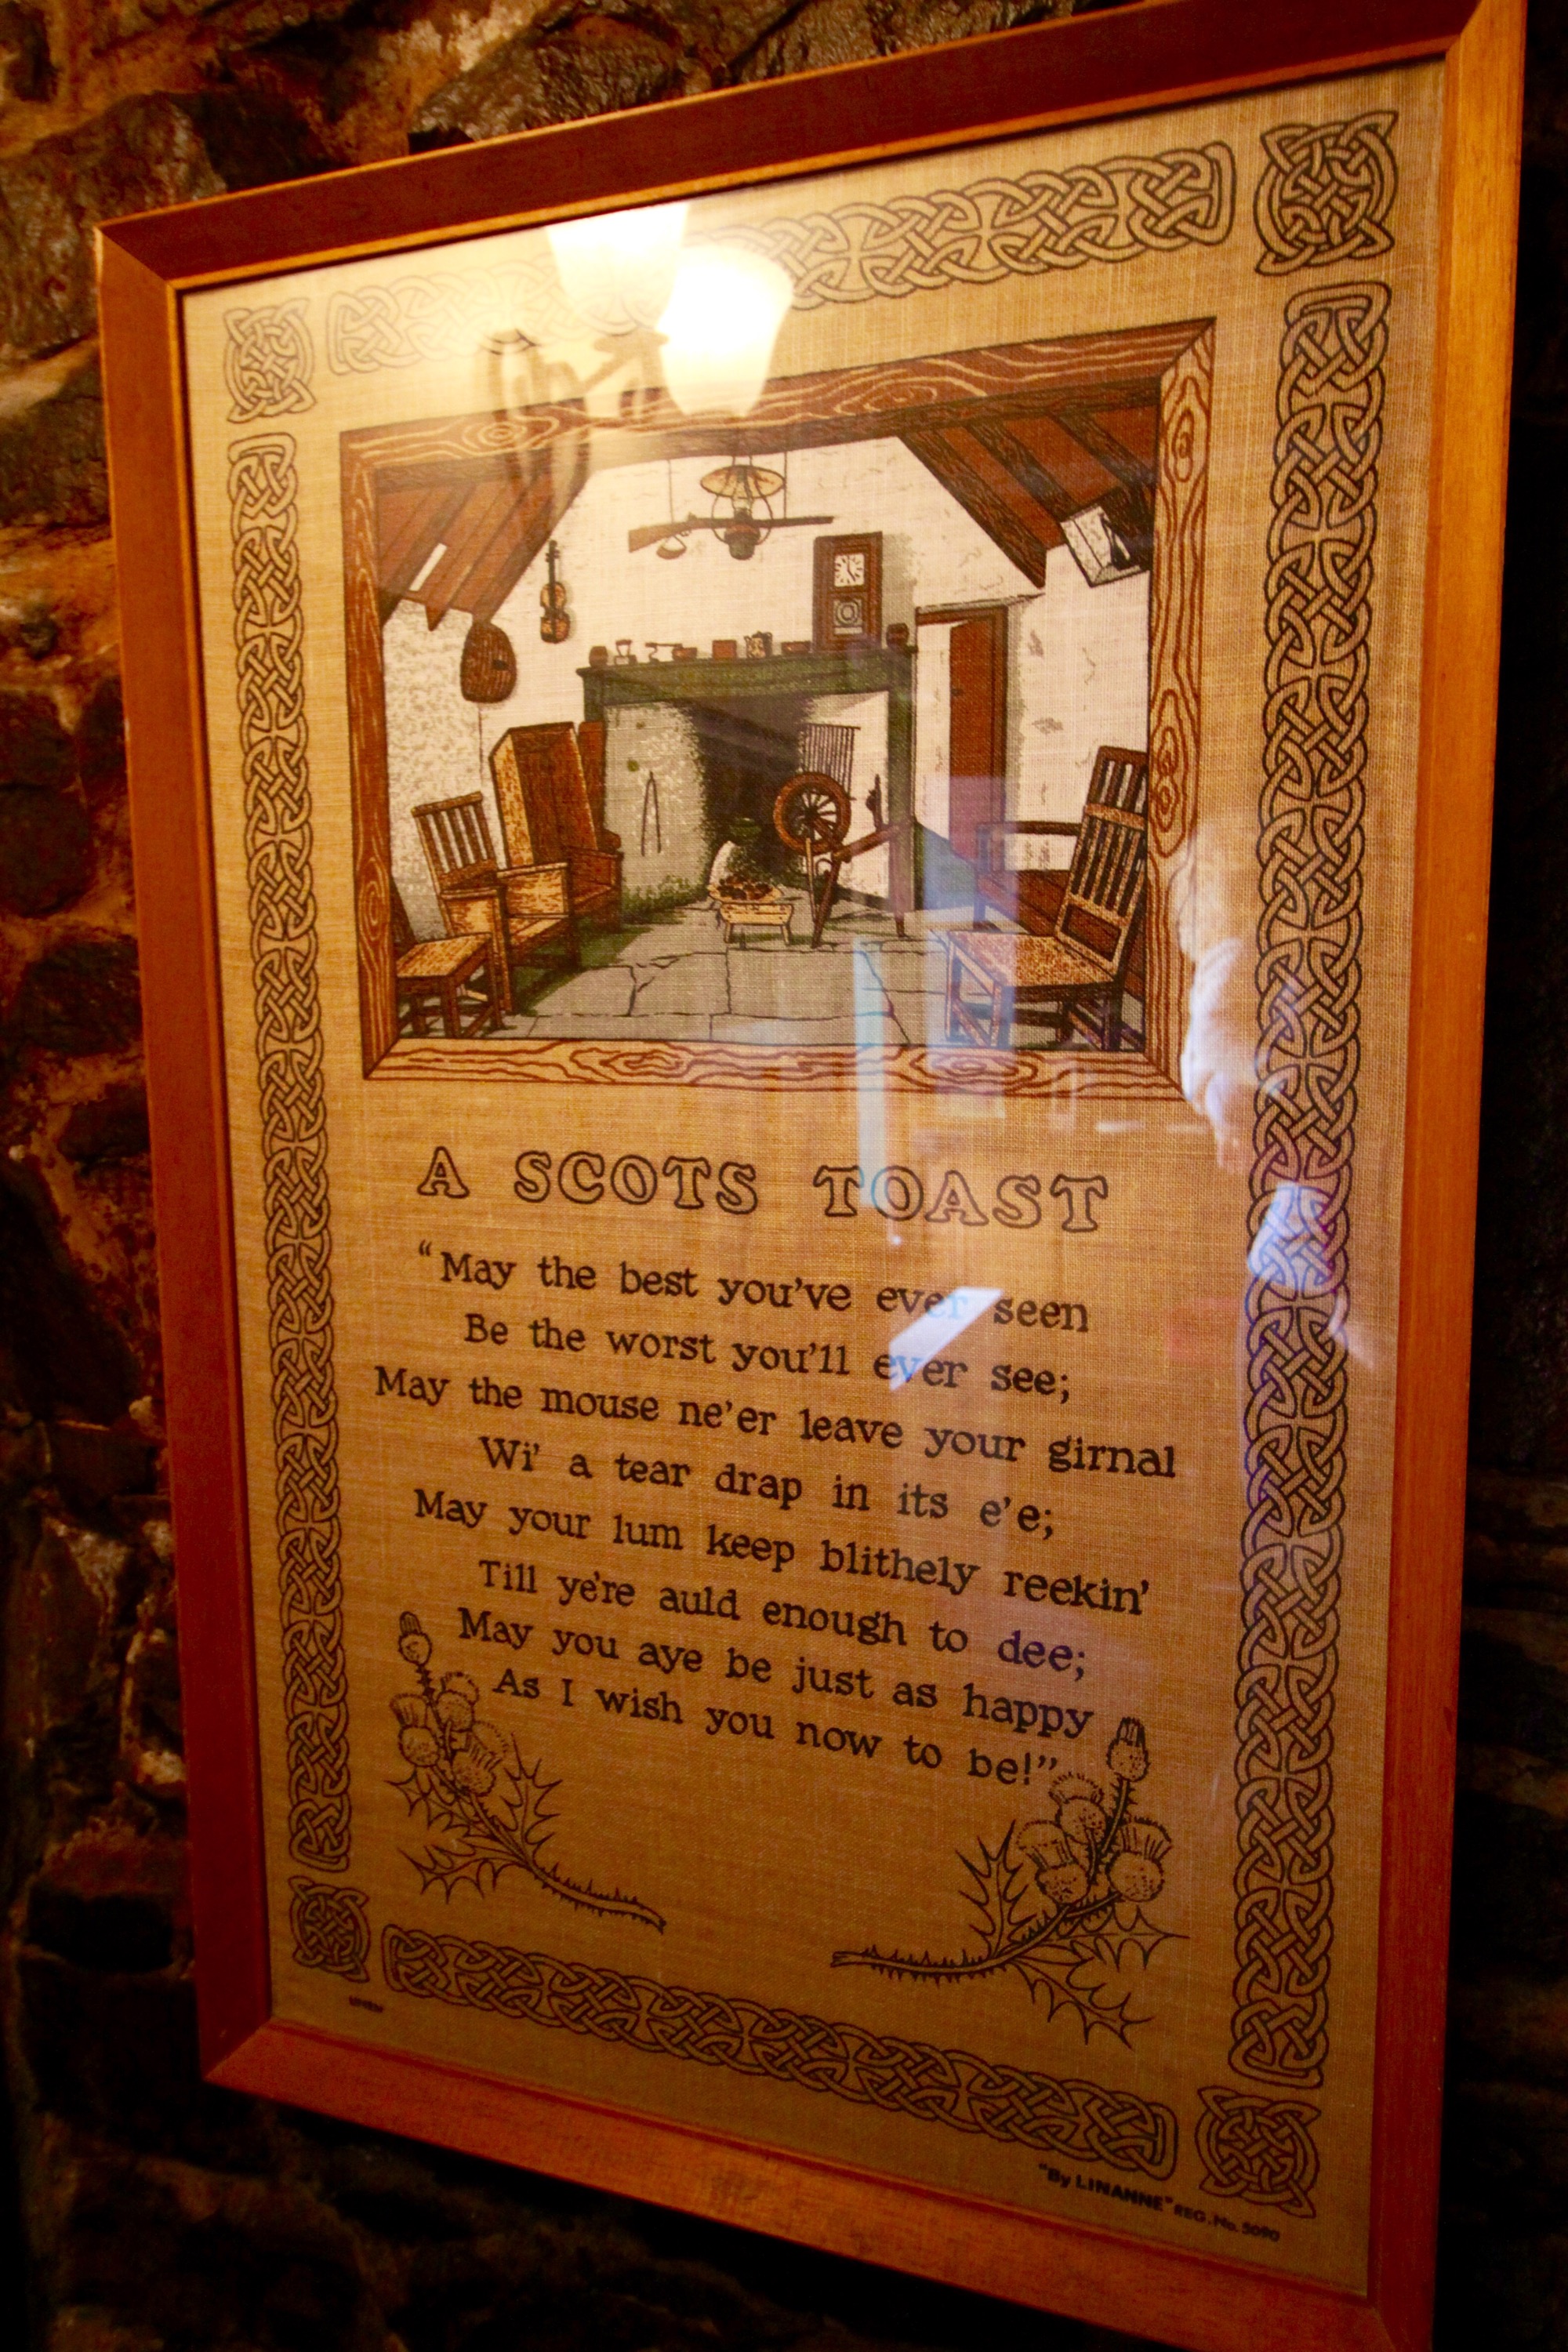 A SCOTS TOAST
“May the best you've ever seen
Be the worst you'll ever see;
May the mouse ne'er leave your girnal
Wi' a tear drap in its e'e;
May your lum keep blithely reekin'
Till ye're auld enough to dee;
May you aye be just as happy
As I wish you now to be!”
"By LINANNE" REG. No. 5090